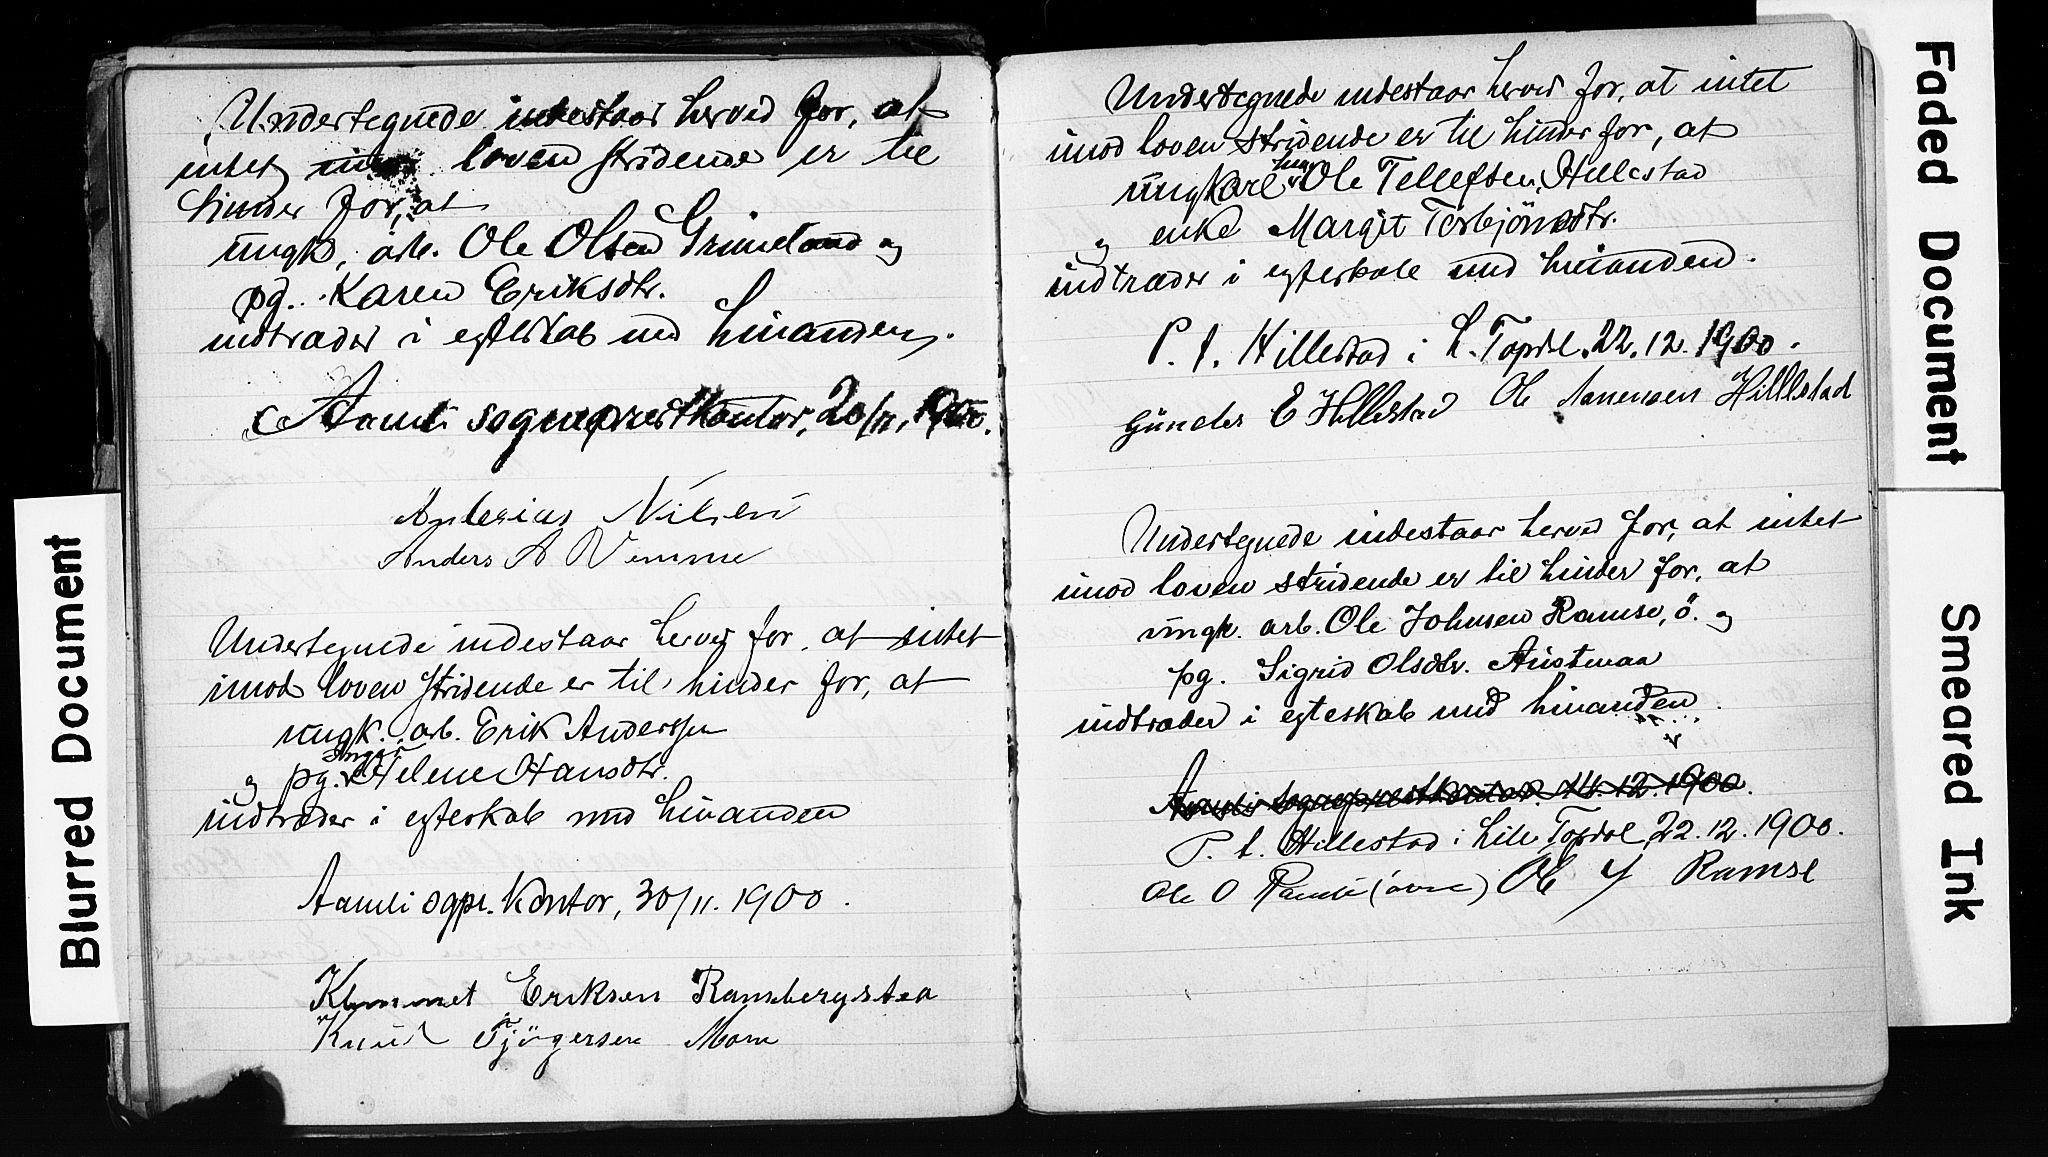 Undertegnede indestaar herved for, at
intet imod loven stridende er til
hinder for, at
ungk. arb. Ole Olsen Grimeland og
pg. Karen Eriksdtr.
indtræder i egteskab med hinanden.
Aamli sogneprestkontor, 20/11. 1900.
Anders A Vimme
Undertegnede indestaar herved for, at intet
imod loven stridende er til hinder for, at
ungk. arb. Erik Anderssen
og pg. Inger Helene Hansdtr.
indtræder i egteskab med hinanden
Aamli sgpr. kontor, 30/11. 1900.
Eriksen
Knud Mom
Undertegnede indestaar herved for, at intet
imod loven stridende er til hinder for, at
ungkarl Ole Tellefsen Hillestad
og enke Margit Torbjörnsdtr.
indtræder i egteskab med hinanden.
P. t. Hillestad i L. Topdl. 22.12.1900.
Gunder E Hillestad Ole Aanensen Hillestad
Undertegnede indestaar herved for, at intet
imod loven stridende er til hinder for, at
ungk. arb. Ole Johnsen Ramse, ö. og
pg. Sigrid Olsdtr. Austenaa
indtræder i egteskab med hinanden.
Aamli sogneprestkontor. 14.12.1900.
P. t. Hillestad i Lille Topdal 22.12.1900.
Ole O Ramse (övre) Ole J Ramse
Blurred Document
Faded Document
Smeared Ink